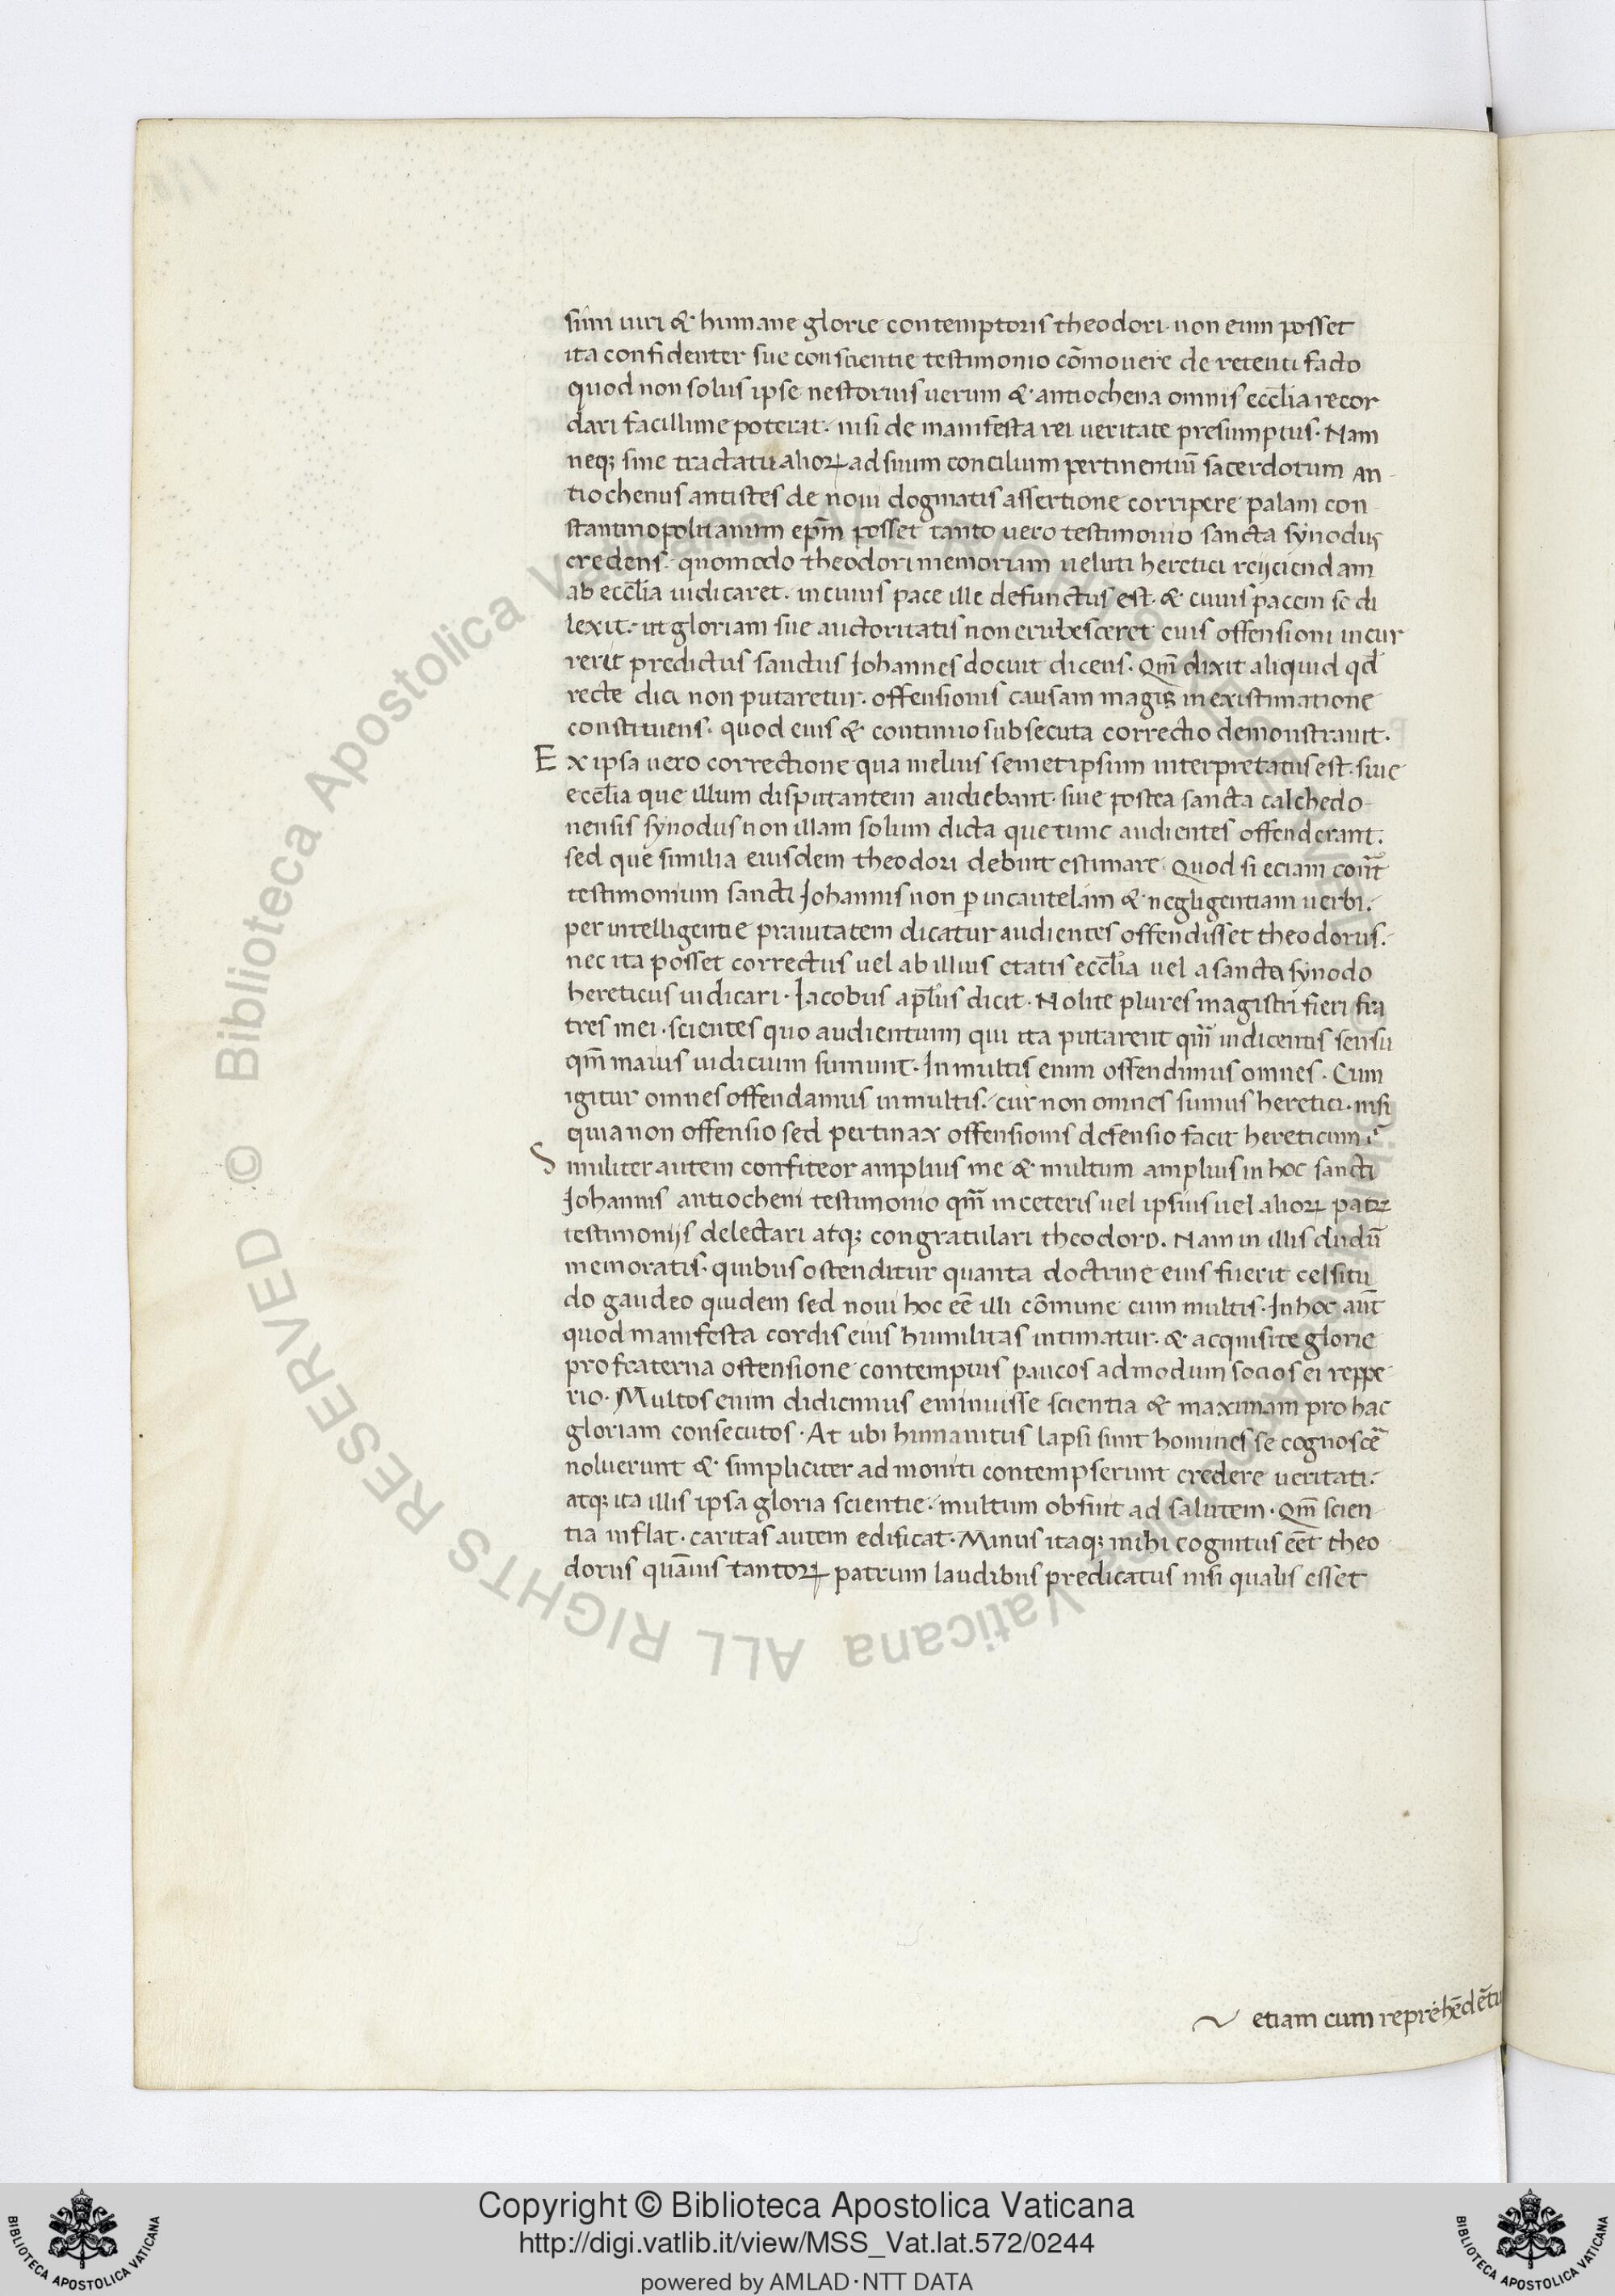 simi uiri & humane glorie contemptoris theodori. non eum posset
ita confidenter sue conscientie testimonio cōmouere de retenti facto
quod non solus ipse nestorius uerum & antiochena omnis eccl̄ia recor
dari facillime poterat. nisi de manifesta rei ueritate presumptus. Nam
neqꝫ sine tractatu alioꝝ ad suum concilium pertinentiū sacerdotum An-
tiochenus antistes de noui dogmatis assertione corripere palam con
stantinopolitanum ep̄m posset tanto uero testimonio sancta synodus
credens. quomodo theodori memoriam ueluti heretici reijciendam
ab eccl̄ia iudicaret. in cuius pace ille defunctus est. & cuius pacem se di
lexit. ut gloriam sue auctoritatis non erubesceret eius offensioni incur
rerit predictus sanctus Johannes docuit dicens. Qm̄ dixit aliquid qđ
recte dici non putaretur. offensionis causam magis in existimatione
constituens. quod eius & continuo subsecuta correctio demonstrauit.
Ex ipsa uero correctione qua melius semetipsum interpretatus est. siue
eccl̄ia que illum disputantem audiebant. siue postea sancta calchedo-
nensis synodus non illam solum dicta que tunc audientes offenderant.
sed que similia eiusdem theodori debuit estimare. Quod si eciam
testimonium sancti Johannis non ꝑ incautelam & negligentiam uerbi.
per intelligentie prauitatem dicatur audientes offendisset theodorus.
nec ita posset correctus uel ab illius etatis eccl̄ia uel a sancta synodo
hereticus iudicari. Iacobus apl̄us dicit. Nolite plures magistri fieri fra
tres mei. scientes quo audientium qui ita putarent qm̄ indicentis sensu
qm̄ maius iudicium sumunt. In multis enim offendimus omnes. Cum
igitur omnes offendamus in multis. cur non omnes sumus heretici. nisi
quia non offensio sed pertinax offensionis defensio facit hereticum?
Similiter autem confiteor amplius me & multum amplius in hoc sancti
Johannis antiocheni testimonio qm̄ in ceteris uel ipsius uel alioꝝ patꝝ
testimonijs delectari atqꝫ congratulari theodoro. Nam in illis dudū
memoratis. quibus ostenditur quanta doctrine eius fuerit celsitu
do gaudeo quidem sed noui hoc eē illi cōmune cum multis. In hoc aut̄
quod manifesta cordis eius humilitas intimatur. & acquisite glorie
pro fraterna ostensione contemptus paucos admodum socios ei reppe-
rio. Multos enim didicimus eminuisse scientia & maximam pro hac
gloriam consecutos. At ubi humanitus lapsi sunt homines se cognoscē
noluerunt & simpliciter admoniti contempserunt credere ueritati.
atqꝫ ita illis ipsa gloria scientie. multum obfuit ad salutem. Qm̄ scien-
tia inflat. caritas autem edificat. Minus itaqꝫ mihi cognitus eēt theo
dorus quāuis tantoꝝ patrum laudibus predicatus nisi qualis esset
etiam cum reprehēdēt
Copyright © Biblioteca Apostolica Vaticana
http://digi.vatlib.it/view/MSS_Vat.lat.572/0244
powered by AMLAD·NTT DATA
BIBLIOTECA APOSTOLICA VATICANA
BIBLIOTECA APOSTOLICA VATICANA
© Biblioteca Apostolica Vaticana ALL RIGHTS RESERVED